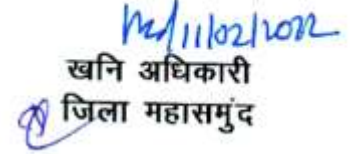 11/02/2022
खनि अधिकारी
जिला महासमुंद